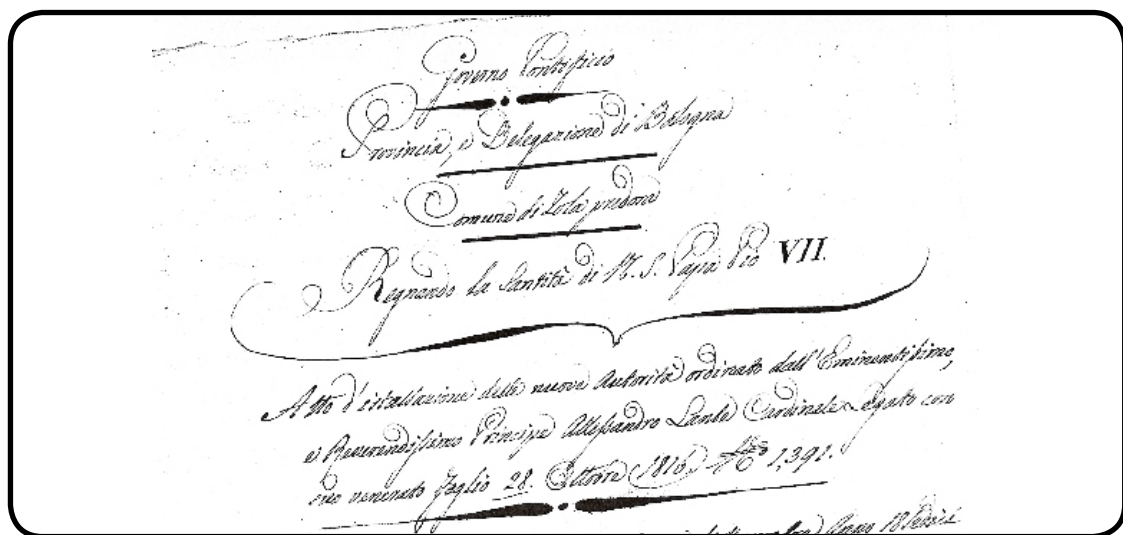 Governo Pontificio
Provincia, e Delegazione di Bologna
Comune di Zola predosa
Regnando la Santità di N. S. Papa Pio VII.
Atto d'istallazione delle nuove Autorità ordinato dall'Eminentissimo,
e Reverendissimo Principe Allessandro Lante Cardinale Legato con
suo venerato foglio 28. Ottobre 1816. N.º 1391.
Anno 18